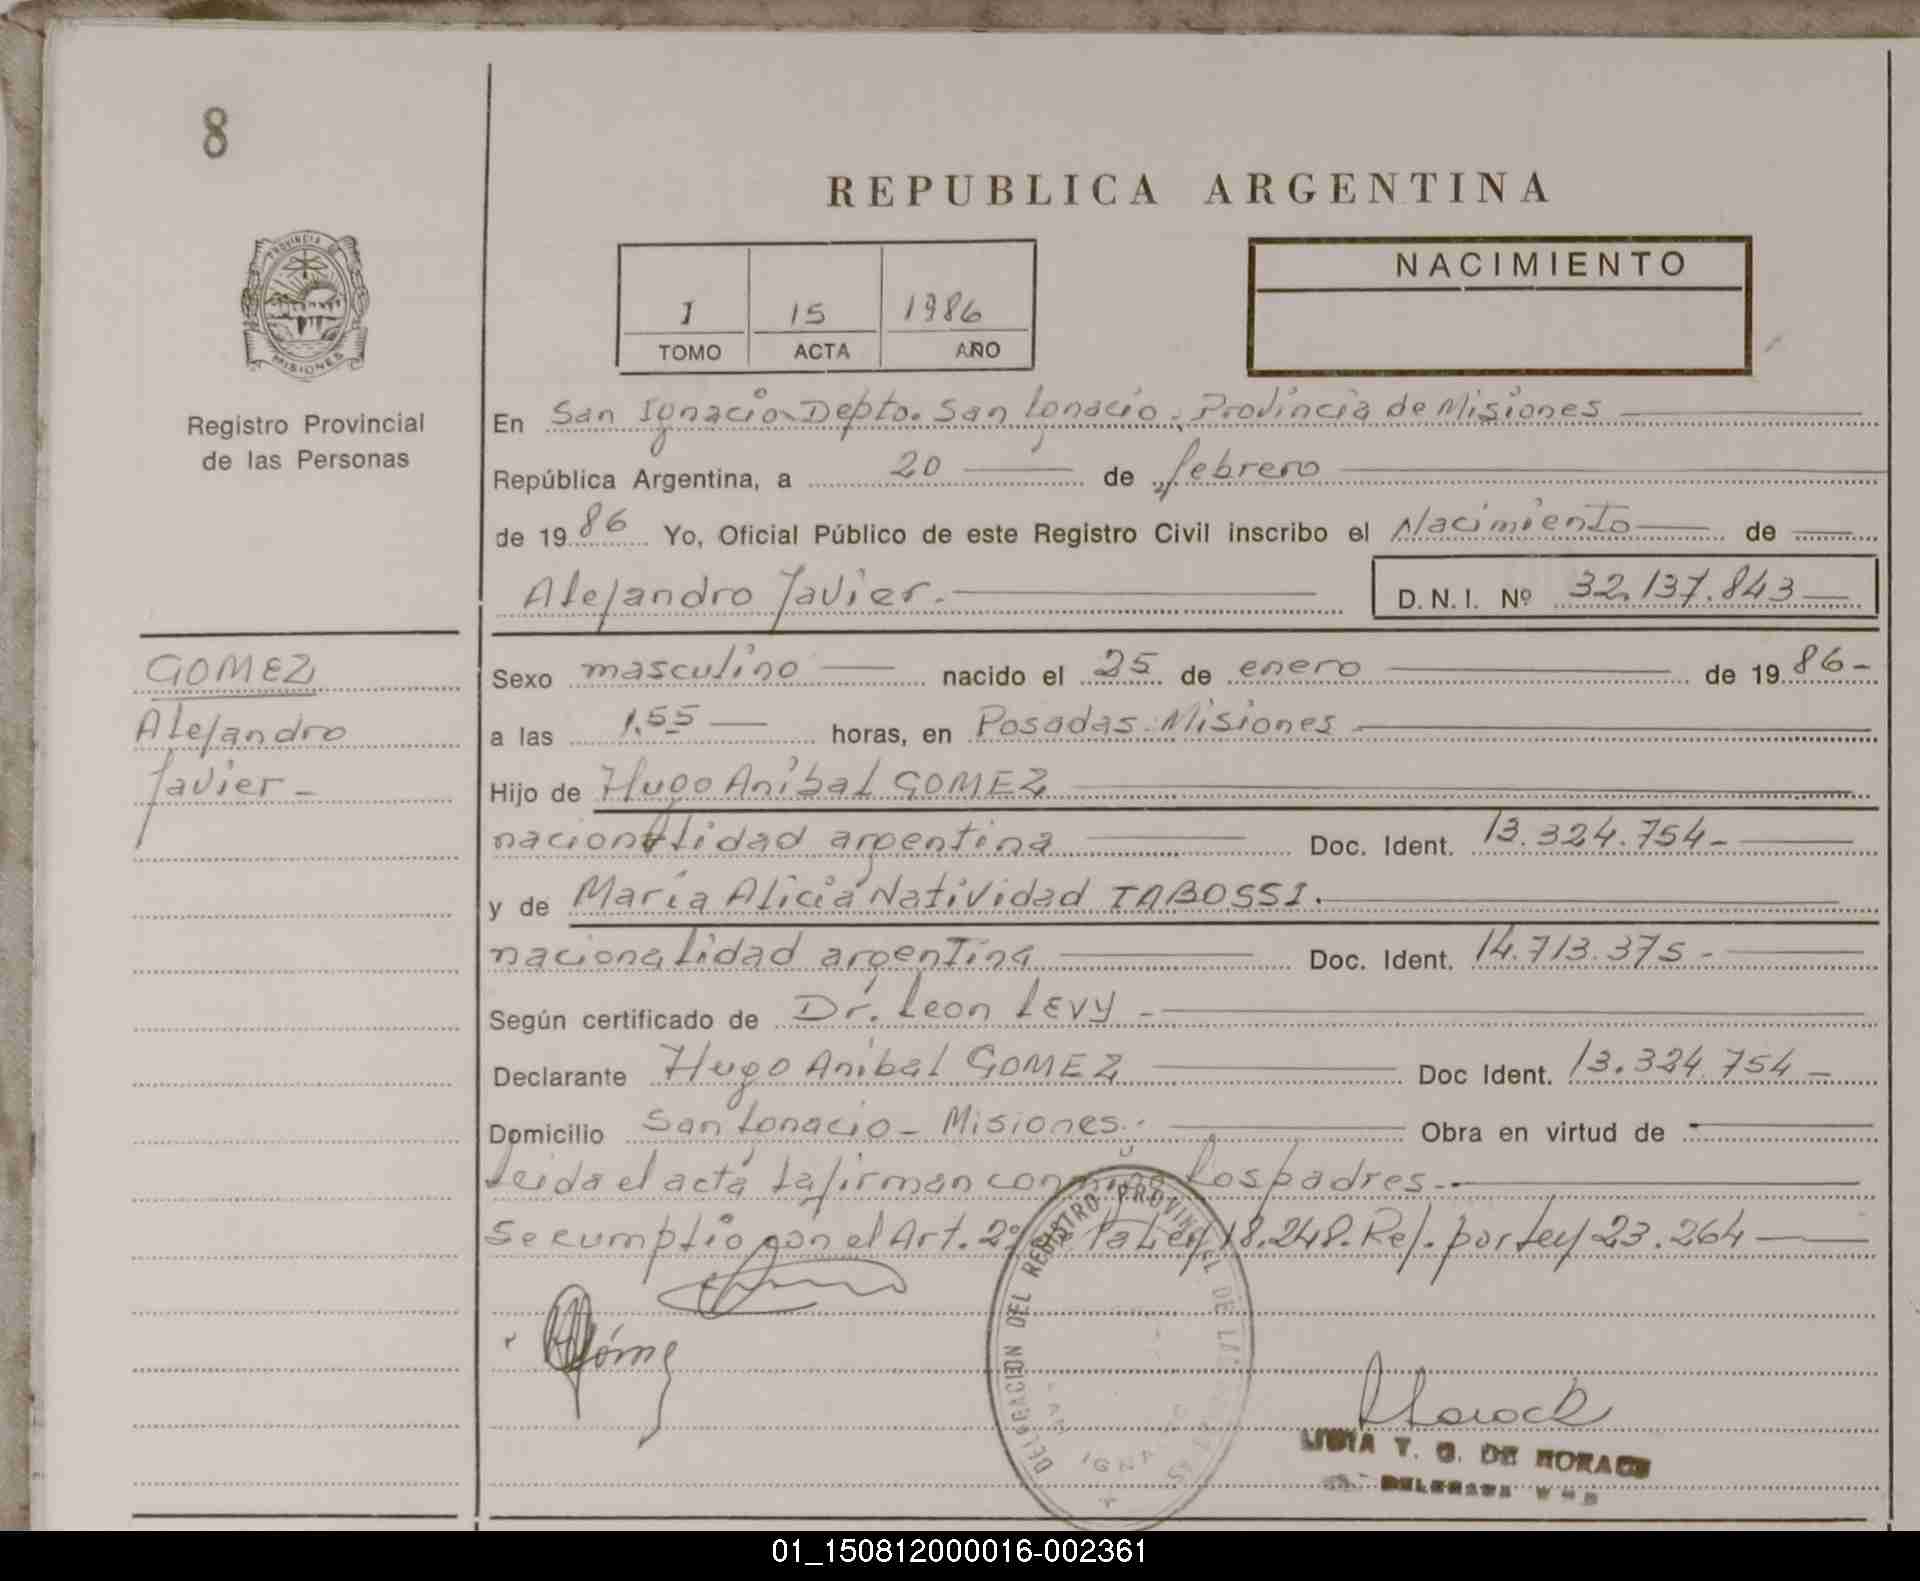 8
REPUBLICA ARGENTINA
PROVINCIA DE
MISIONES
Registro Provincial
de las Personas
1 15 1986
TOMO ACTA AÑO
NACIMIENTO
En San Ignacio Depto. San Ignacio. Provincia de Misiones
República Argentina, a 20 de febrero
de 1986 Yo, Oficial Público de este Registro Civil inscribo el Nacimiento de
Alejandro Javier. D.N.I. Nº 32.137.843
GOMEZ
Alejandro
Javier -
Sexo masculino nacido el 25 de enero de 1986-
a las 1.55 horas, en Posadas Misiones
Hijo de Hugo Anibal GOMEZ
nacionalidad argentina Doc. Ident. 13.324.754-
y de María Alicia Natividad TABOSSI.
nacionalidad argentina Doc. Ident. 14.713.375-
Según certificado de Dr. Leon LEVY -
Declarante Hugo Anibal GOMEZ Doc Ident. 13.324.754-
Domicilio San Ignacio - Misiones. Obra en virtud de
Leida el acta la firman conmigo los padres.
Se cumplio con el Art. 2º de la Ley 18.248. Ref. por Ley 23.264
DELEGACION DEL REGISTRO PROVINCIAL DE LAS
SAN IGNACIO
T. G. DE
DELEGADA
01_150812000016-002361